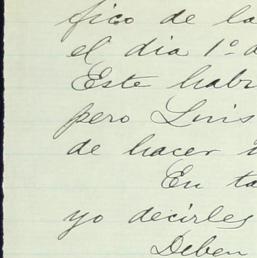 fico de la
el dia 1º d
Este habr
pero Luis
de hacer
En ta
yo decirles
Deben